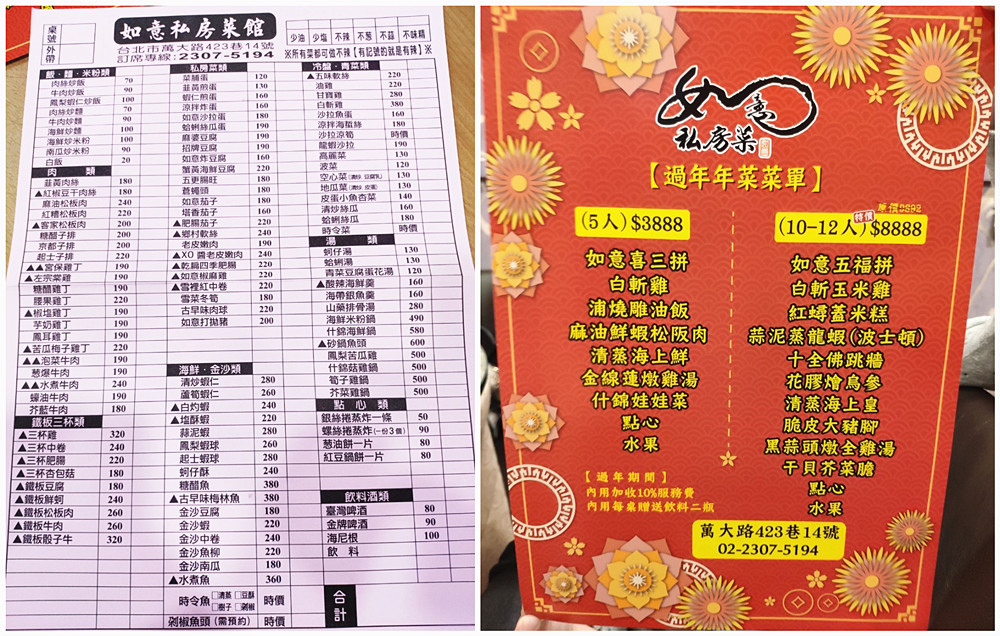 桌號
外帶
如意私房菜館
台北市萬大路423巷14號
訂席專線:2307-5194
少油 少塩 不辣 不葱 不蒜 不味精
※所有菜都可做不辣【有記號的就是有辣】※
飯．麵．米粉類
肉絲炒飯 70
牛肉炒飯 90
鳳梨蝦仁炒飯 100
肉絲炒麵 70
牛肉炒麵 90
海鮮炒麵 100
海鮮炒米粉 100
南瓜炒米粉 90
白飯 20
肉 類
韮黃肉絲 180
▲紅椒豆干肉絲 180
麻油松板肉 240
紅糟松板肉 220
▲客家小炒 200
糖醋子排 200
京都子排 200
起士子排 220
▲▲宮保雞丁 190
▲左宗棠雞 190
糖醋雞丁 190
腰果雞丁 220
▲椒塩雞丁 190
芋奶雞丁 190
鳳耳雞丁 190
▲苦瓜梅子雞丁 220
▲▲泡菜牛肉 190
葱爆牛肉 190
▲▲水煮牛肉 240
蠔油牛肉 190
芥藍牛肉 180
鐵板三杯類
▲三杯雞 320
▲三杯中卷 240
▲三杯肥腸 220
▲三杯杏包菇 180
▲鐵板豆腐 180
▲鐵板鮮蚵 240
▲鐵板松板肉 260
▲鐵板牛肉 260
▲鐵板骰子牛 320
私房菜類
菜脯蛋 120
韮黃煎蛋 130
蝦仁煎蛋 160
涼拌炸蛋 160
如意沙拉蛋 180
蛤蜊絲瓜蛋 190
麻婆豆腐 190
招牌豆腐 190
如意炸豆腐 160
蟹黃海鮮豆腐 220
五更腸旺 180
蒼蠅頭 180
如意茄子 180
塔香茄子 160
▲肥腸茄子 220
▲鄉村軟絲 240
老皮嫩肉 190
▲XO 醬老皮嫩肉 240
▲乾扁四季肥腸 220
▲如意椒麻雞 220
▲雪裡紅中卷 220
雪菜冬筍 180
古早味肉球 220
如意打拋豬 200
海鮮．金沙類
清炒蝦仁 280
蘆筍蝦仁 260
▲白灼蝦 240
▲塩酥蝦 220
蒜泥蝦 280
鳳梨蝦球 260
起士蝦球 280
蚵仔酥 240
糖醋魚 380
▲古早味梅林魚 380
金沙豆腐 180
金沙蝦 220
金沙中卷 240
金沙魚柳 220
金沙南瓜 180
▲水煮魚 360
時令魚 □清蒸 □豆酥 □樹子 □剁椒 時價
剁椒魚頭 (需預約) 時價
冷盤．青菜類
▲五味軟絲 220
油雞 220
甘寶雞 280
白斬雞 380
沙拉魚蛋 160
涼拌海蜇絲 180
沙拉涼筍 時價
龍蝦沙拉 190
高麗菜 130
菠菜 120
空心菜 130
地瓜葉 130
皮蛋小魚杏菜 140
清炒絲瓜 160
蛤蜊絲瓜 180
時令菜 時價
湯 類
蚵仔湯 130
蛤蜊湯 130
青菜豆腐蛋花湯 120
▲酸辣海鮮羹 160
海帶銀魚羹 160
山藥排骨湯 280
海鮮米粉鍋 490
什錦海鮮鍋 580
▲砂鍋魚頭 600
鳳梨苦瓜雞 500
什錦菇雞鍋 500
筍子雞鍋 500
芥菜雞鍋 500
點 心 類
銀絲捲蒸炸一條 50
螺絲捲蒸炸(一份3個) 90
葱油餅一片 80
紅豆鍋餅一片 80
飲料酒類
臺灣啤酒 80
金牌啤酒 90
海尼根 100
飲 料
合計
如意
私房菜
【過年年菜菜單】
(5人)$3888
如意喜三拼
白斬雞
浦燒雕油飯
麻油鮮蝦松阪肉
清蒸海上鮮
金線蓮燉雞湯
什錦娃娃菜
點心
水果
【過年期間】
內用加收10%服務費
內用每桌贈送飲料二瓶
特價
(10-12人)$8888
如意五福拼
白斬玉米雞
紅蟳蓋米糕
蒜泥蒸龍蝦(波士頓)
十全佛跳牆
花膠燴烏參
清蒸海上皇
脆皮大豬腳
黑蒜頭燉全雞湯
干貝芥菜膽
點心
水果
萬大路423巷14號
02-2307-5194